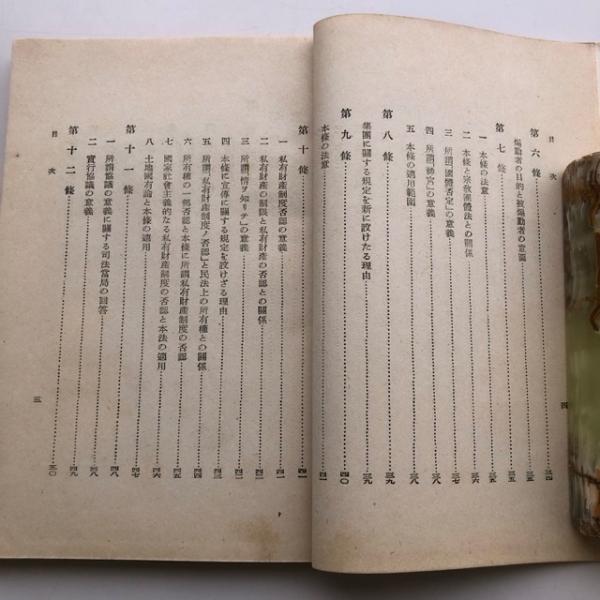 目次
第六條
煽動者の目的と被煽動者の意圖
第七條
一 本條の法意
二 本條と宗敎團體法との關係
三 所謂「國體否定」の意義
四 所謂「神宮」の意義
五 本條の適用範圍
第八條
集團に關する規定を新に設けたる理由
第九條
本條の法意
第十條
一 私有財產制度否認の意義
二 私有財產の制限と私有財產の否認との關係
三 所謂「情ヲ知リテ」の意義
四 本條に宣傳に關する規定を設けざる理由
五 所謂「私有財產制度ノ否認」と民法上の所有權との關係
六 所有權の一部否認と本條に所謂私有財產制度の否認
七 國家社會主義的たる私有財產制度の否認と本法の適用
八 土地國有論と本條の適用
第十一條
一 所謂協議の意義に關する司法當局の回答
二 實行協議の意義
第十二條
目次
三